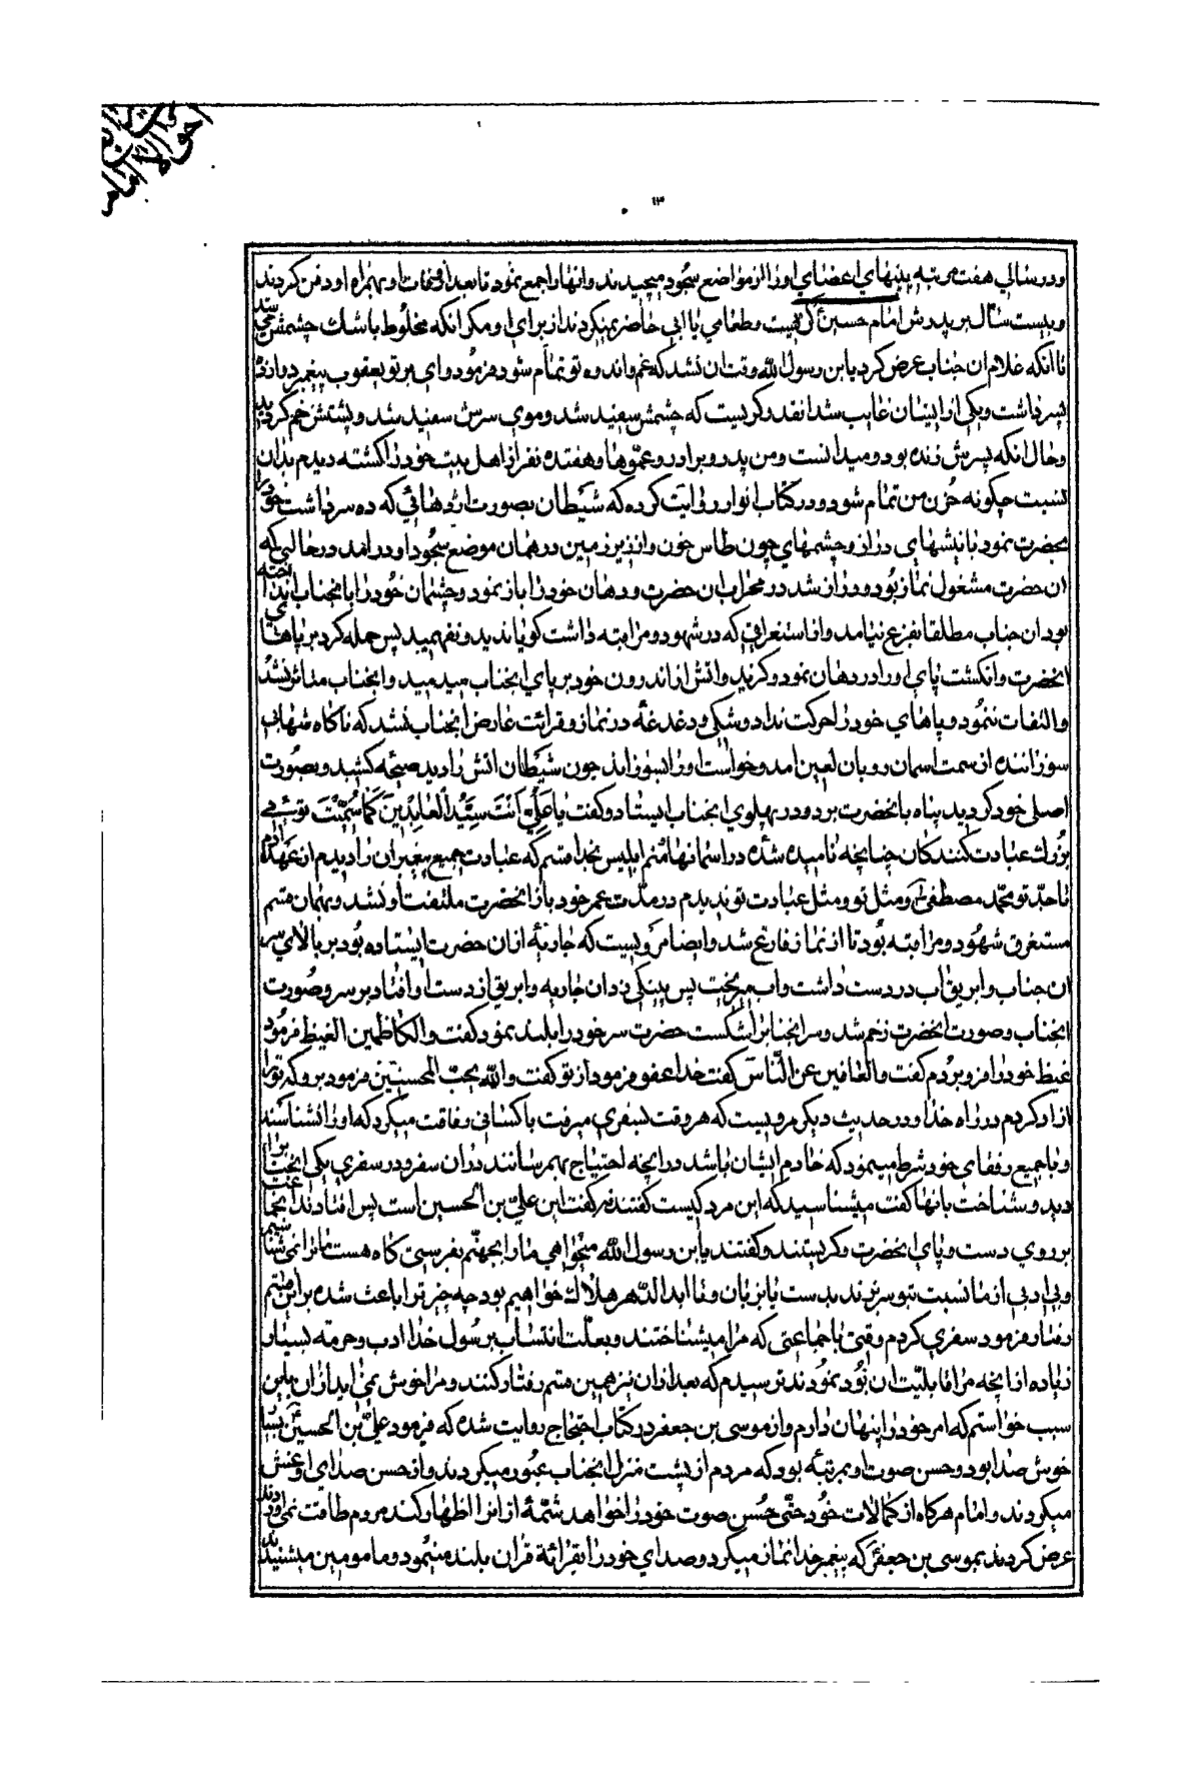 ۱۳
و در سالی هفت مرتبه پنبهای اعضای او را از مواضع سجود میچیدند و انها را جمع نمود تا بعد از وفات او بهمراه او دفن کردند
و بیست سال بر پدرش امام حسین گریست و طعامی یا ابی حاضر نمیکردند از برای او مکر انکه مخلوط باشک چشمش می شد
تا انکه غلام ان جناب عرض کرد یابن رسول الله وقت ان نشد که غم و اندوه تو تمام شود فرمود وای بر تو یعقوب پیغمبر دوازده
پسر داشت و یکی از ایشان غایب شد انقدر کریست که چشمش سفید شد و موی سرش سفید شد و پشتش خم کردید
و حال انکه پسرش زنده بود و میدانست و من پدر و برادر و عموها و هفده نفر از اهل بیت خود را کشته دیدم بدان
نسبت چکونه حزن من تمام شود و در کتاب انوار روایت کرده که شیطان بصورت اژدهائی که ده سر داشت خود را
بحضرت نمود با نیشهای دراز و چشمهای چون طاس خون و از زیر زمین در همان موضع سجود او در امد در حالتی که
ان حضرت مشغول نماز بود و دراز شد در محراب ان حضرت و دهان خود را باز نمود و چشمان خود را بانجناب انداخته
بود ان جناب مطلقا بفزع نیامد و از استغراقی که در شهود و مراقبه داشت کویا ندید و نفهمید پس حمله کرد بر پاهای
انحضرت و انکشت پای او را در دهان نمود و کزید و اتش از اندرون خود بر پای انجناب میدمید و انجناب متاثر نشد
و التفات ننمود و پاهای خود را حرکت نداد و شکی و دغدغه در نماز و قرائت عارض انجناب نشد که ناکاه شهابی
سوزاننده از سمت اسمان رو بان لعین امد و خواست او را بسوزاند چون شیطان اتش را دید صیحه کشید و بصورت
اصلی خود کردید پناه بانحضرت برد و در پهلوی انجناب ایستاد و کفت یا علی انت سید العابدین کما سمیت توئی
بزرک عبادت کنندکان چنانچه نامیده شده در اسمانها منم ابلیس بخدا قسم که عبادت جمیع پیغمبران را دیدم از عهد ادم
تا جد تو محمد مصطفی و مثل تو و مثل عبادت تو ندیدم در مدت عمر خود باز انحضرت ملتفت او نشد و بهمان قسم
مستغرق شهود و مراقبه بود تا از نماز فارغ شد و ایضا مرویست که جاریهٔ از ان حضرت ایستاده بود بر بالای سر
ان جناب و ابریق اب در دست داشت و اب میریخت پس پینکی زد ان جاریه و ابریق از دست او افتاد بر سر و صورت
انجناب و صورت انحضرت زخم شد و سر انجناب را شکست حضرت سر خود را بلند نمود کفت و الکاظمین الغیظ فرمود
غیظ خود را فرو بردم کفت و العافین عن الناس کفت خدا عفو فرمود از تو کفت و الله یحب المحسنین فرمود برو که تو را
ازاد کردم در راه خدا و در حدیث دیکر مرویست که هر وقت بسفری میرفت با کسانی رفاقت میکرد که او را نشناسند
و با جمیع رفقای خود شرط مینمود که خادم ایشان باشد در انچه احتیاج بهم رسانند در ان سفر و در سفری یکی انجناب را
دید و شناخت بانها کفت میشناسید که این مرد کیست کفتند نه کفت این علی بن الحسین است پس افتادند انجماعت
بر روی دست و پای انحضرت و کریستند و کفتند یابن رسول الله میخواهی ما را بجهنم بفرستی کاه هست ما ترا نشناسیم
و بی ادبی از ما نسبت بتو سر زند بدست یا بزبان و ما ابد الدهر هلاک خواهیم بود چه چیز ترا باعث شده بر این قسم
رفتار فرمود سفری کردم وقتی با جماعتی که مرا میشناختند و بعلت انتساب برسول خدا ادب و حرمت بسیار
زیاده از انچه مرا قابلیت ان بود نمودند ترسیدم که بعد از ان نیز همین قسم رفتار کنند و مرا خوش نمی اید از ان باین
سبب خواستم که امر خود را پنهان دارم و از موسی بن جعفر در کتاب احتجاج روایت شده که فرمود علی بن الحسین بسیار
خوش صدا بود و حسن صوت او بمرتبهٔ بود که مردم از پشت منزل انجناب عبور میکردند و از حسن صدای او غش
میکردند و امام هرکاه از کمالات خود حتی حسن صوت خود را خواهد شمهٔ از انرا اظهار کند مردم طاقت نمی اورند
عرض کردند بموسی بن جعفر که پیغمبر خدا نماز میکرد و صدای خود را بقرائة قران بلند مینمود و مامومین میشنیدند